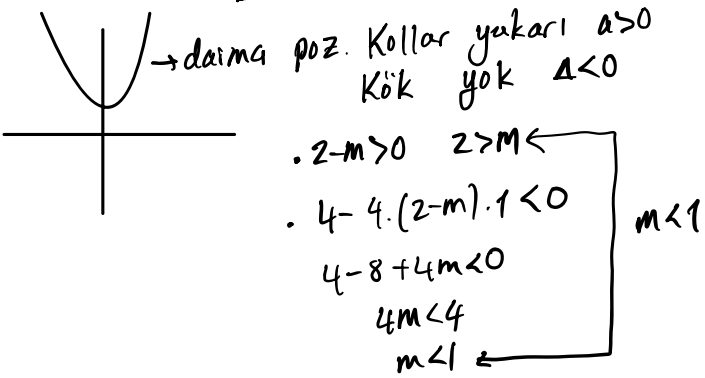 → daima poz. Kollar yukarı a>0
Kök yok Δ<0
. 2-m>0 2>m
. 4-4.(2-m).1<0
m<1
4-8+4m<0
4m<4
m<1